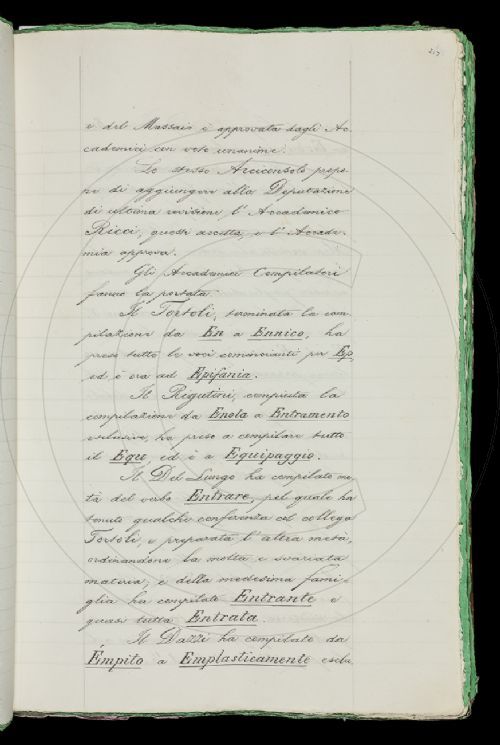 e del Massaio è approvata dagli Ac-
cademici con voto unanime.
Lo stesso Arciconsolo propo-
ne di aggiungere alla Deputazione
di ultima revisione l'Accademico
Ricci; questi accetta, e l'Accade-
mia approva.
Gli Accademici Compilatori
fanno la portata.
Il Tortoli, terminata la com-
pilazione da En a Ennico, ha
preso tutte le voci comincianti per Ep,
ed è ora ad Epifania.
Il Rigutini, compiuta la
compilazione da Enola a Entramento
esclusive, ha preso a compilare tutto
il Eque ed è a Equipaggio.
Il Del Lungo ha compilato me-
tà del verbo Entrare, pel quale ha
tenuto qualche conferenza col collega
Tortoli, e preparata l'altra metà,
ordinandone la molta e svariata
materia; e della medesima fami-
glia ha compilato Entrante e
quasi tutta Entrata.
Il Dazzi ha compilato da
Émpito a Emplasticamente esclu-